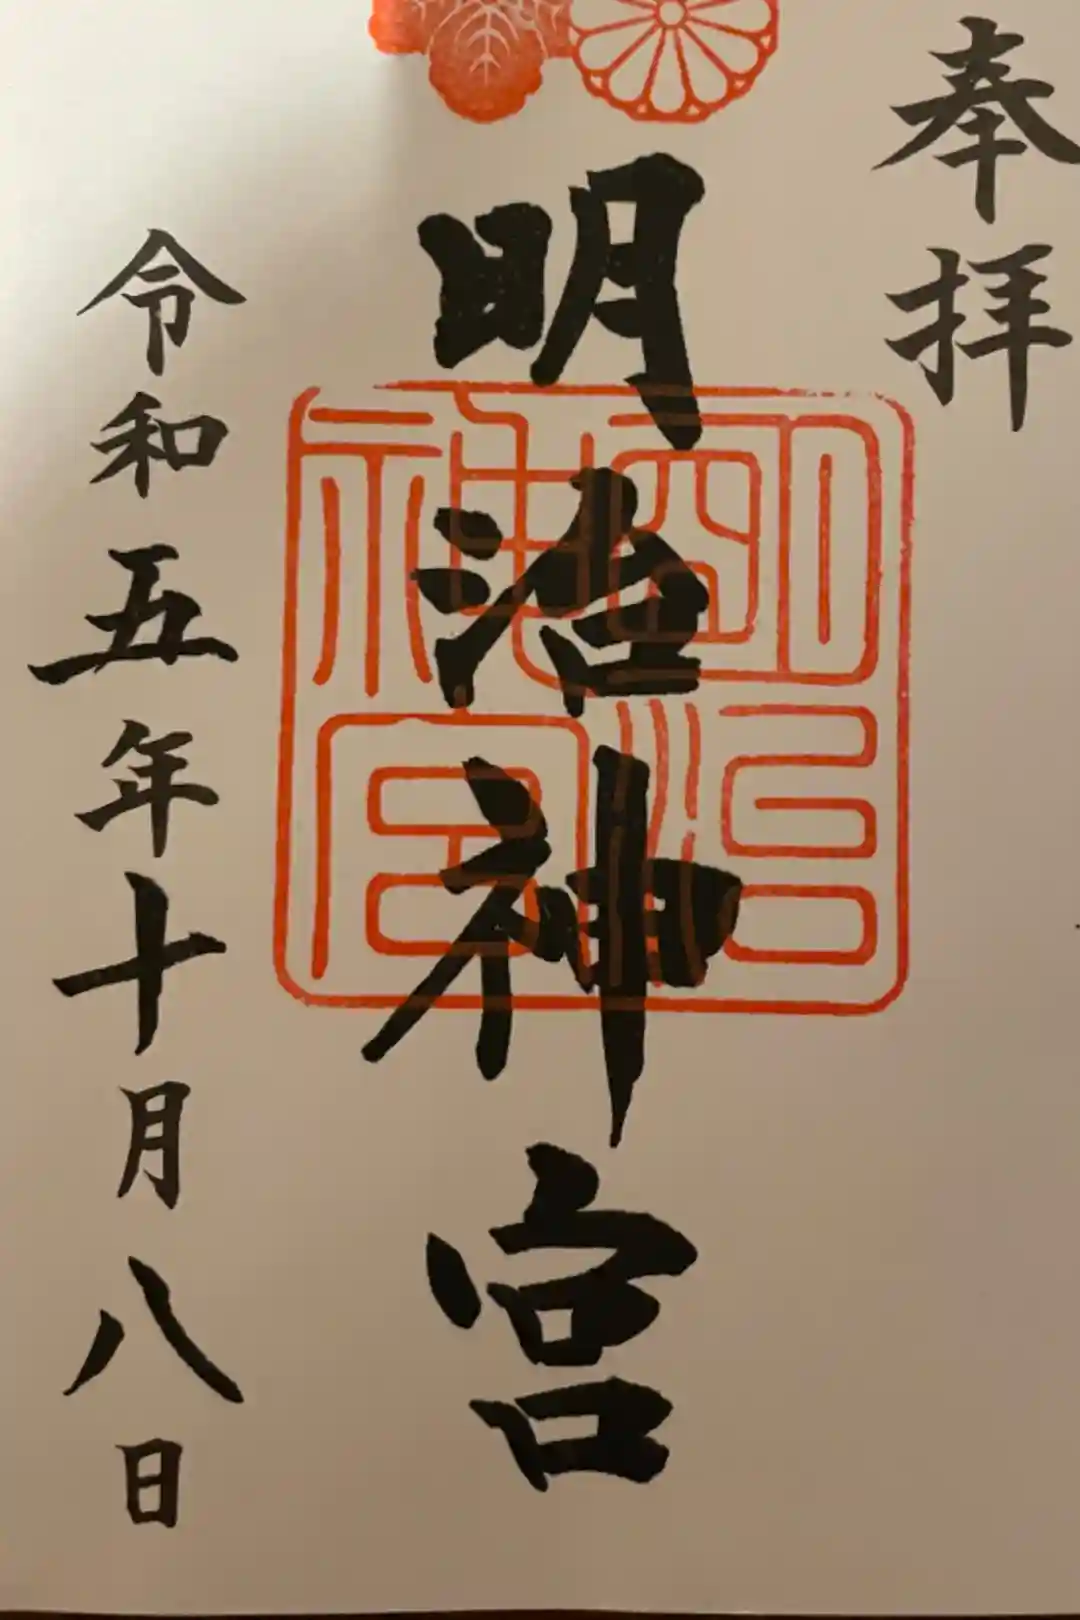 奉拝
明治神宮
明治神宮
令和五年十月八日